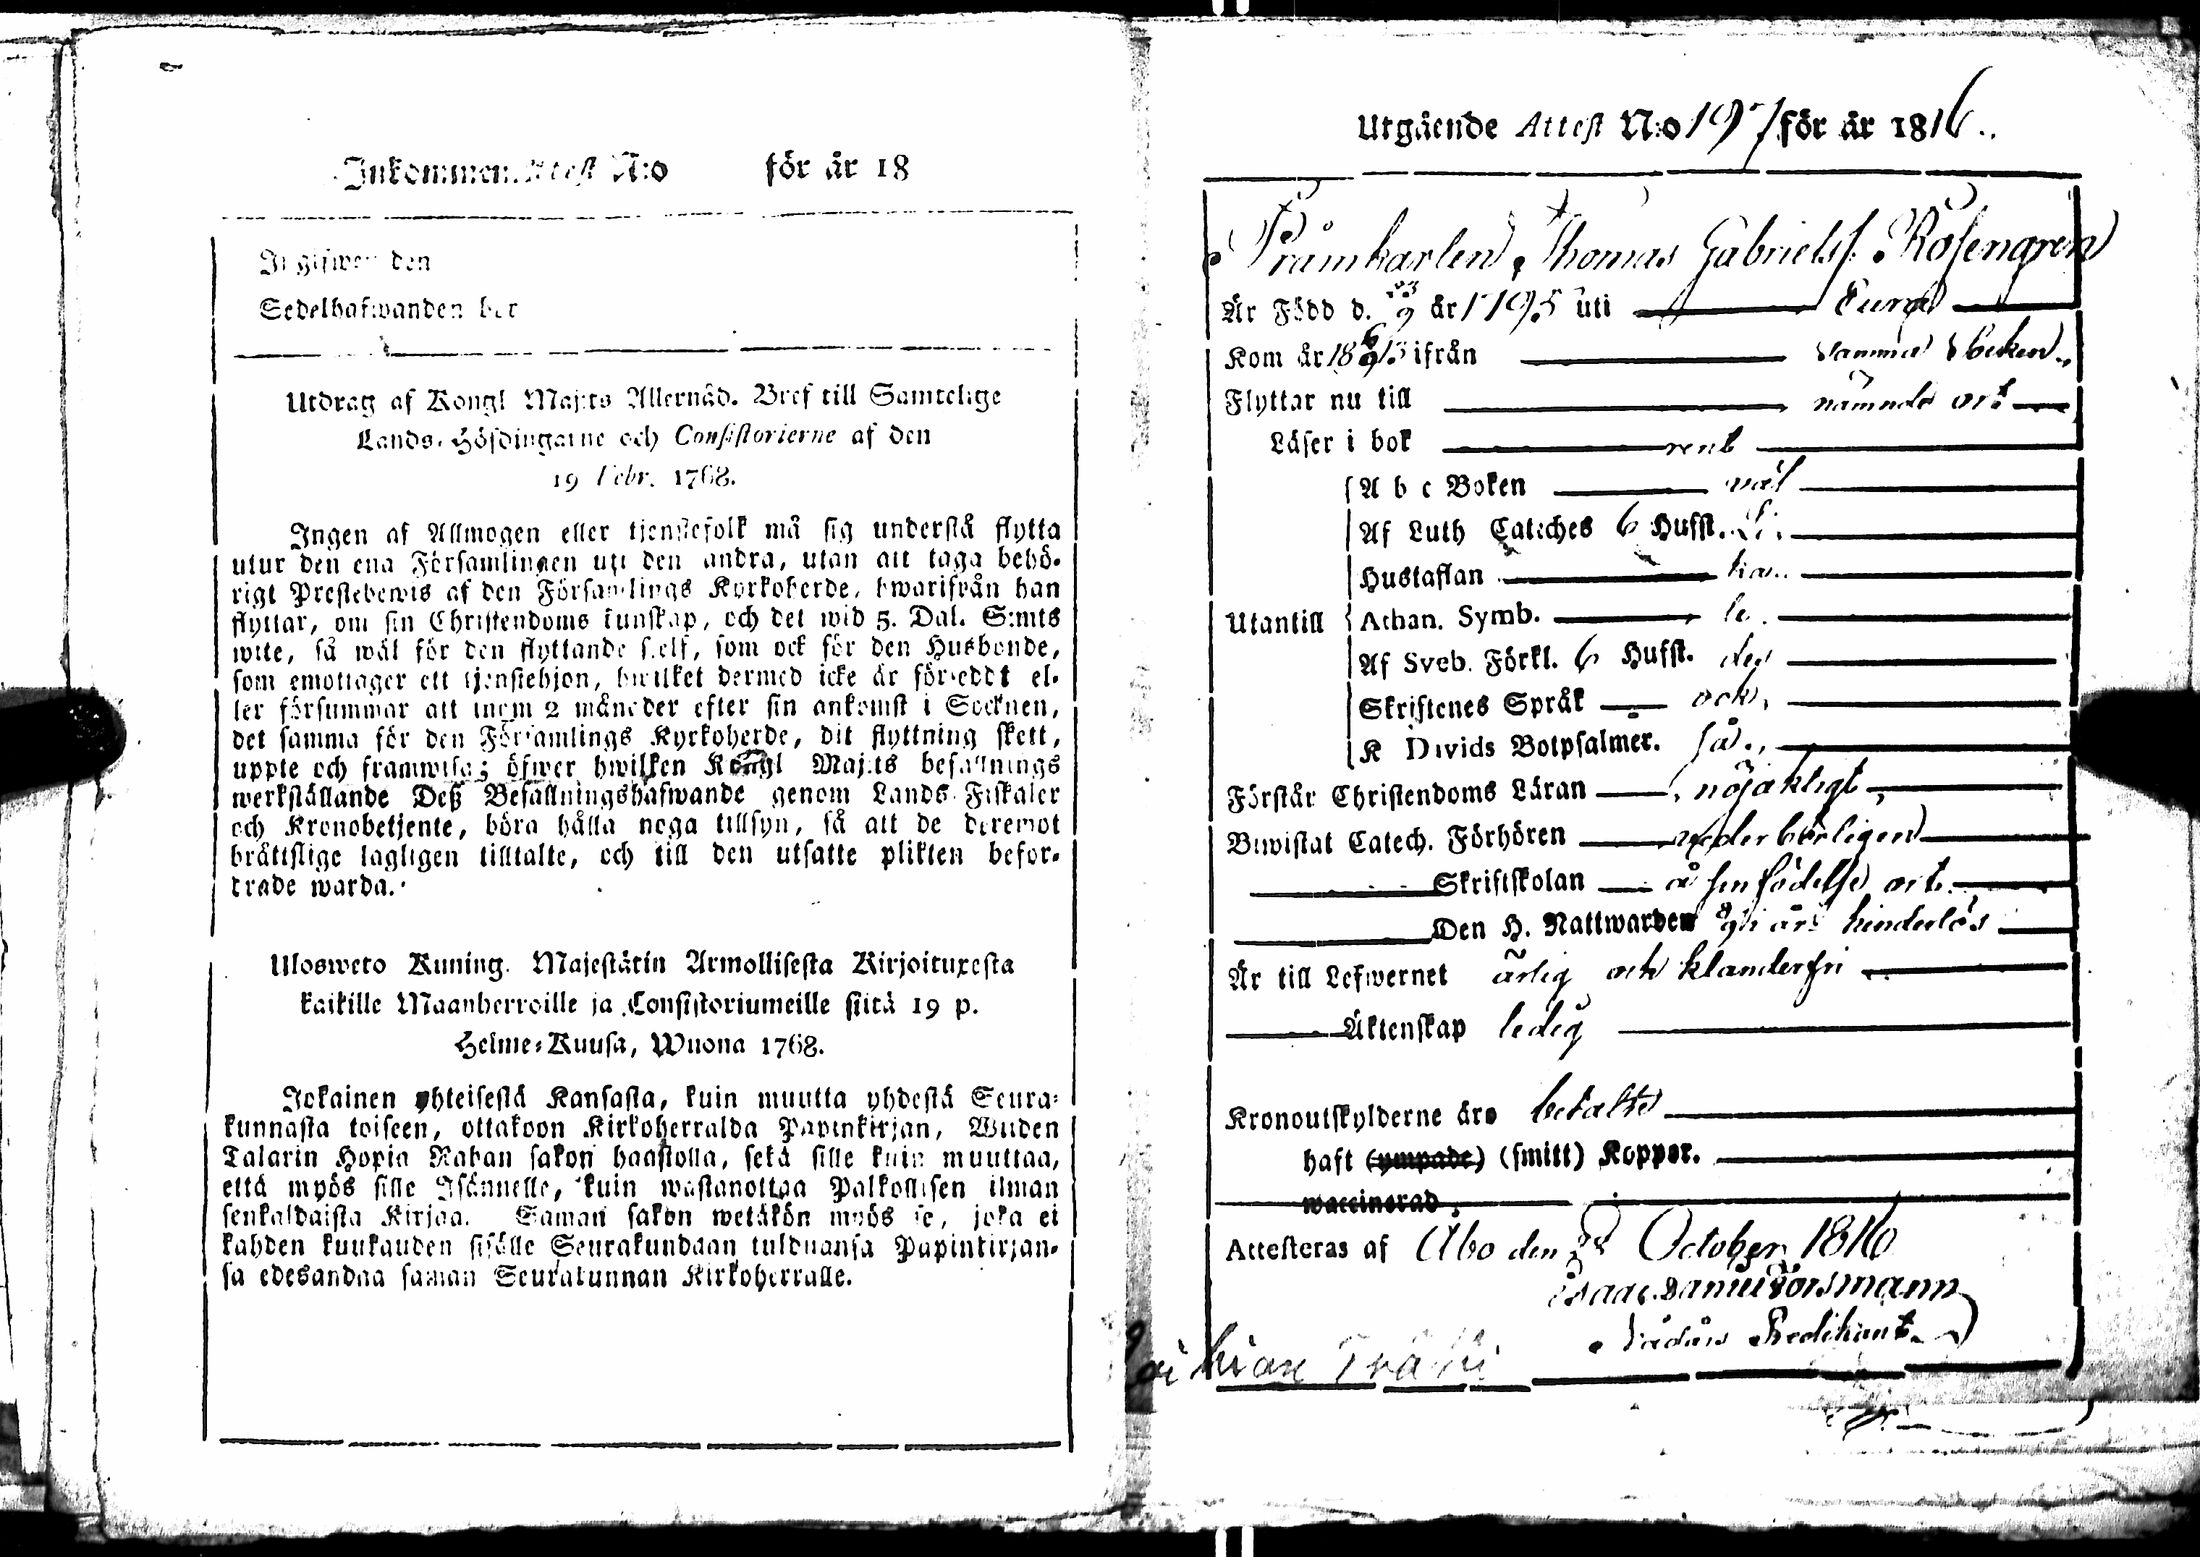 Inkommen Attest N:o för år 18
Ingifwen den
Sedelhafwanden bor
Utdrag af Kongl Maj:ts Allernåd. Bref till Samtelige
Lands-Höfdingarne och Consistorierne af den
19 Febr. 1768.
Ingen af Allmogen eller tjenstefolk må sig understå flytta
utur den ena Församlingen uti den andra, utan att taga behö-
rigt Prestebewis af den Församlings Kyrkoherde, hwarifrån han
flyttar, om sin Christendoms kunskap, och det wid 5. Dal. S:mts
wite, så wäl för den flyttande sielf, som ock för den Husbonde,
som emottager ett tjenstehjon, hwilket dermed icke är försedt el-
ler försummar att inom 2 månader efter sin ankomst i Socknen,
det samma för den Församlings Kyrkoherde, dit flyttning skett,
uppte och framwisa; öfwer hwilken Kongl Maj:ts befallnings
werkställande Deß Befallningshafwande genom Lands Fiskaler
och Kronobetjente, böra hålla noga tillsyn, så att de deremot
bråttslige lagligen tilltalte, och till den utsatte plikten befor-
drade warda.
Ulosweto Kuning. Majestätin Armollisesta Kirjoituxesta
kaikille Maanherroille ja Consistoriumeille siitä 19 p.
Helme-Kuusa, Wuona 1768.
Jokainen yhteisestä Kansasta, kuin muutta yhdestä Seura-
kunnasta toiseen, ottakoon Kirkoherralda Papinkirjan, Wiiden
Talarin Hopia Rahan sakon haastolla, sekä sille kuin muuttaa,
että myös sille Isännelle, kuin wastanottaa Palkollisen ilman
senkaldaista Kirjaa. Saman sakon wetäkön myös se, joka ei
kahden kuukauden sisälle Seurakundaan tulduansa Papinkirjan-
sa edesandaa saman Seurakunnan Kirkoherralle.
Utgående Attest N:o 197 för år 1816.
Pråmkarlen Thomas Gabrielss. Rosengren
Är Född d. 23/9 år 1795 uti Eura
Kom år 1815 ifrån samma Socken
Flyttar nu till nämnde ort
Läser i bok rent
A b c Boken wäl
Af Luth Cateches 6 Hufst. Li
Hustaflan ka
Utantill Athan. Symb. le
Af Sveb. Förkl. 6 Hufst. des
Skriftenes Språk och
K Davids Botpsalmer. så
Förstår Christendoms Läran nöjaktigt
Biwistat Catech. Förhören wederbörligen
Skriftskolan å sin födelse ort
Den H. Nattwarden i år hinderlös
Är till Lefwernet ärlig och klanderfri
Äktenskap ledig
Kronoutskylderne äro betalte
haft (ympade) (smitt) Koppor.
waccinerad
Attesteras af Åbo den October 1816
Isaac Daniel Forsmann
Predikant